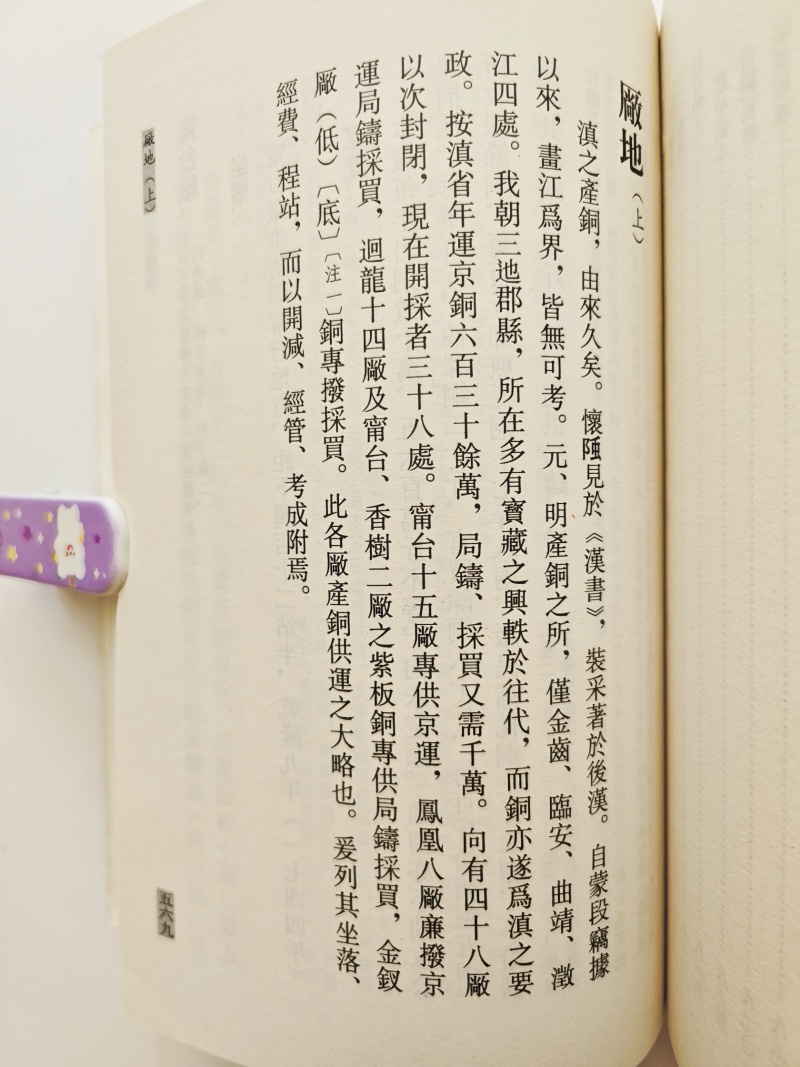 廠地（上）
滇之產銅，由來久矣。懷陲見於《漢書》，裝采著於後漢。自蒙段竊據
以來，畫江爲界，皆無可考。元、明產銅之所，僅金齒、臨安、曲靖、澂
江四處。我朝三迆郡縣，所在多有寳藏之興軼於往代，而銅亦遂爲滇之要
政。按滇省年運京銅六百三十餘萬，局鑄、採買又需千萬。向有四十八廠
以次封閉，現在開採者三十八處。甯台十五廠專供京運，鳳凰八廠廉撥京
運局鑄採買，迴龍十四廠及甯台、香樹二廠之紫板銅專供局鑄採買，金釵
廠（低）〔底〕〔注一〕銅專撥採買。此各廠產銅供運之大略也。爰列其坐落、
經費、程站，而以開減、經管、考成附焉。
廠地（上）
五六九